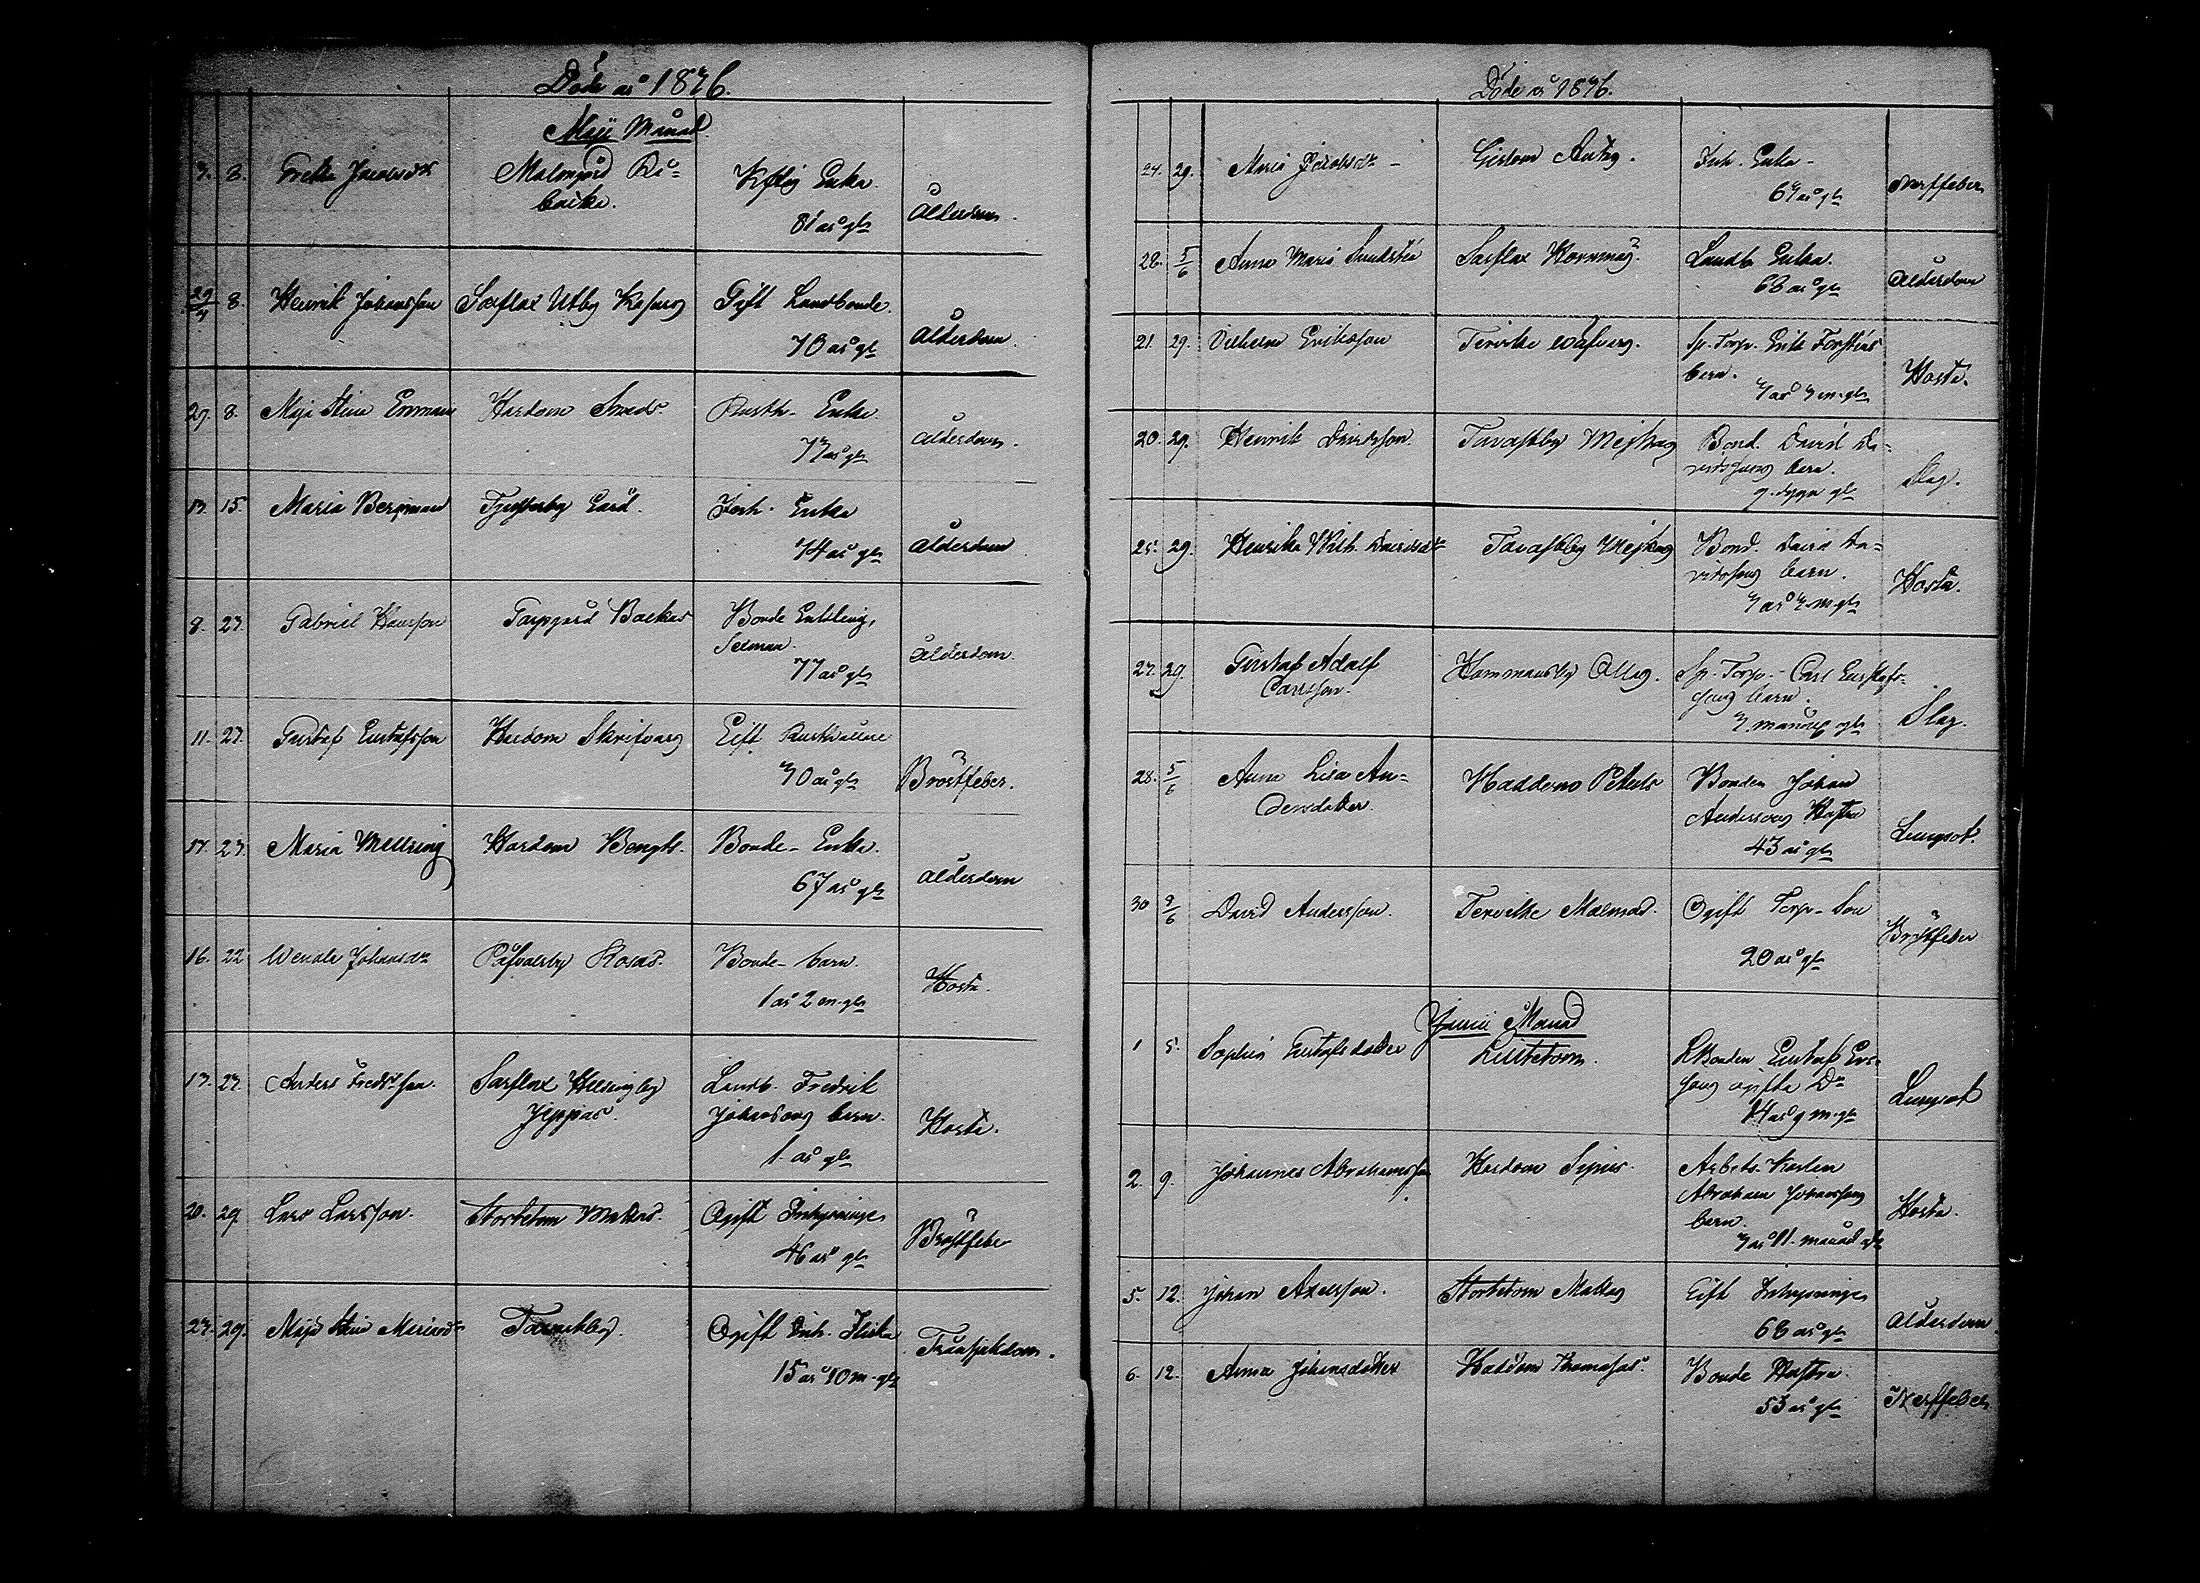 Döde år 1876.
Maji Månad.
3. 8. Greta Jacobsdr Malmgård Rå=
backa. Kyflig Enka
81 år gl. Ålderdom.
29/4 8. Henrik Johansson Sarflax Utby Gift Landbonde.
70 år gl. Ålderdom.
29. 8. Maja Stina Enman Hardom Smeds. Rusth. Enka
77 år gl. Ålderdom.
13. 15. Maria Bergman Tjusterby Gård. Inh. Enka
74 år gl. Ålderdom
8. 23. Gabriel Hansson Torpgård Backas Bonde Enkling,
77 år gl. Ålderdom.
11. 23. Gustaf Gustafsson Hardom Skrifvars Gift Rusthållare
70 år gl. Bröstfeber.
17. 23. Maria Mellring Hardom Bengts. Bonde-Enka.
67 år gl. Ålderdom
16. 22 Wendla Johansdr Påfvalsby Rosas. Bonde-barn.
1 år 2 m. gl. Hosta.
13. 23. Anders Fredrsson. Sarflax Hellingby
Jeppas. Landb. Fredrik
Johanssons barn.
1 år gl. Hosta.
20. 29. Lars Larsson. Stortetom Mattas. Ogift Inhysinge
46 år gl. Bröstfeber
23. 29. Maja Stina Tavastby. Ogift Inh. Flicka
15 år 10 m. gl. Trånsjukdom.
Döde år 1876.
24. 29. Maria Jacobsdr - Gislom Inh. Enka -
67 år gl. Nerffeber
28. 5/6 Anna Maria Sundstén Sarflax Landb. Enka.
68 år gl. Ålderdom
21. 29. Vilhelm Eriksson Tervike Sp. Torp. Erik Forsténs
barn.
7 år 7 m. gl. Hosta.
20. 29. Henrik Davidsson Tavastby Bond. David Da=
vidssons barn.
9 dygn gl. Slag.
25. 29. Henrika Wilh. Davidsdr Tavastby Bond. David Da=
vidssons barn.
7 år 7 m. gl. Hosta.
27. 29. Gustaf Adolf
Carlsson. Hommansby Ollas. Sp. Torp. Carl Gustafs=
sons barn.
7 månad gl. Slag.
28. 5/6 Anna Lisa An=
dersdotter. Haddom Peters Bonden Johan
Anderssons Hustru
43 år gl. Lungsot.
30 9/6 David Andersson. Tervike Malmas. Ogift Torp-Son
20 år gl. Bröstfeber
Junii Månad
1 5. Sophia Gustafsdotter Lilltetom. LBonden Gustaf Gus=
sons ogifta Dr
14 år 9 m. gl. Lungsot
2. 9. Johannes Abrahamsson Hardom Sipas. Arbets-Karlen
Abraham Johanssons
barn.
7 år 11 månad gl. Hosta.
5. 12. Johan Axelsson. Stortetom Mattas Gift Inhysinge
68 år gl. Ålderdom.
6. 12. Anna Johansdotter Haddom Thomasas. Bonde Hustru
53 år gl. Nerffeber